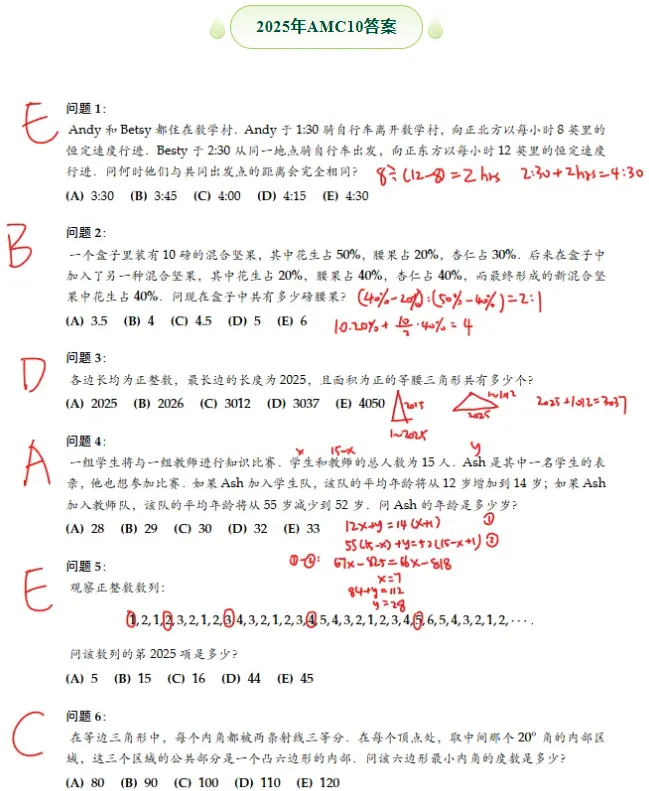 2025年AMC10答案
E
问题 1:
Andy 和 Betsy 都住在数学村. Andy 于 1:30 骑自行车离开数学村, 向正北方以每小时 8 英里的
恒定速度行进. Besty 于 2:30 从同一地点骑自行车出发, 向正东方以每小时 12 英里的恒定速度
行进. 问何时他们与共同出发点的距离会完全相同? 8÷(12-8)=2hrs 2:30+2hrs=4:30
(A) 3:30 (B) 3:45 (C) 4:00 (D) 4:15 (E) 4:30
B
问题 2:
一个盒子里装有 10 磅的混合坚果, 其中花生占 50%, 腰果占 20%, 杏仁占 30%. 后来在盒子中
加入了另一种混合坚果, 其中花生占 20%, 腰果占 40%, 杏仁占 40%, 而最终形成的新混合坚
果中花生占 40%. 问现在盒子中共有多少磅腰果? (40%-20%):(50%-40%)=2:1
(A) 3.5 (B) 4 (C) 4.5 (D) 5 (E) 6 10·20%+10/2·40%=4
D
问题 3:
各边长均为正整数, 最长边的长度为 2025, 且面积为正的等腰三角形共有多少个?
(A) 2025 (B) 2026 (C) 3012 (D) 3037 (E) 4050 2025 1~2025 1~1012 2025 2025+1012=3037
A
问题 4:
x 15-x y
一组学生将与一组教师进行知识比赛. 学生和教师的总人数为 15 人. Ash 是其中一名学生的表
亲, 他也想参加比赛. 如果 Ash 加入学生队, 该队的平均年龄将从 12 岁增加到 14 岁; 如果 Ash
加入教师队, 该队的平均年龄将从 55 岁减少到 52 岁. 问 Ash 的年龄是多少岁?
(A) 28 (B) 29 (C) 30 (D) 32 (E) 33 12x+y=14(x+1) ①
55(15-x)+y=52(15-x+1) ②
67x-825=66x-818
x=7
84+y=112
y=28
E
问题 5:
观察正整数数列:
1, 2, 1, 2, 3, 2, 1, 2, 3, 4, 3, 2, 1, 2, 3, 4, 5, 4, 3, 2, 1, 2, 3, 4, 5, 6, 5, 4, 3, 2, 1, 2, ⋯ .
问该数列的第 2025 项是多少?
(A) 5 (B) 15 (C) 16 (D) 44 (E) 45
C
问题 6:
在等边三角形中, 每个内角都被两条射线三等分. 在每个顶点处, 取中间那个 20° 角的内部区
域, 这三个区域的公共部分是一个凸六边形的内部. 问该六边形最小内角的度数是多少?
(A) 80 (B) 90 (C) 100 (D) 110 (E) 120